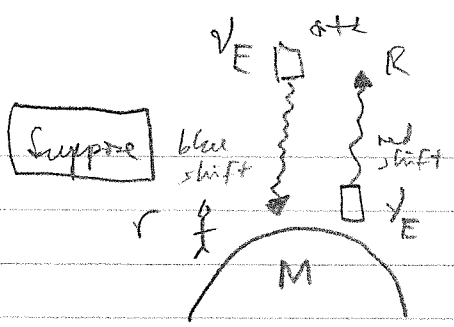 ν_E R
Suppose
blue
shift
red
shift
r
ν_E
M